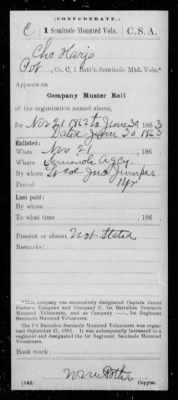 (CONFEDERATE.)
C 1 Seminole Mounted Vols. C.S.A.
Cho Harjo
Pvt, Co. C, 1 Batt'n Seminole Mtd. Vols.*
Appears on
Company Muster Roll
of the organization named above,
for Nov 21 1862 to June 30, 1863
Dated June 30 1863
Enlisted:
When Nov. 21, 186
Where Seminole Agcy.
By whom Lt Col Jno Jumper
Period 1 yr
Last paid:
By whom
To what time , 186
Present or absent Not Stated
Remarks:
*This company was successively designated Captain James
Factor's Company and Company C, 1st Battalion Seminole
Mounted Volunteers, and as Company —, 1st Regiment
Seminole Mounted Volunteers.
The 1st Battalion Seminole Mounted Volunteers was organized
September 21, 1861. It was subsequently increased to a
regiment and designated the 1st Regiment Seminole Mounted
Volunteers.
Book mark:
(642) Copyist.